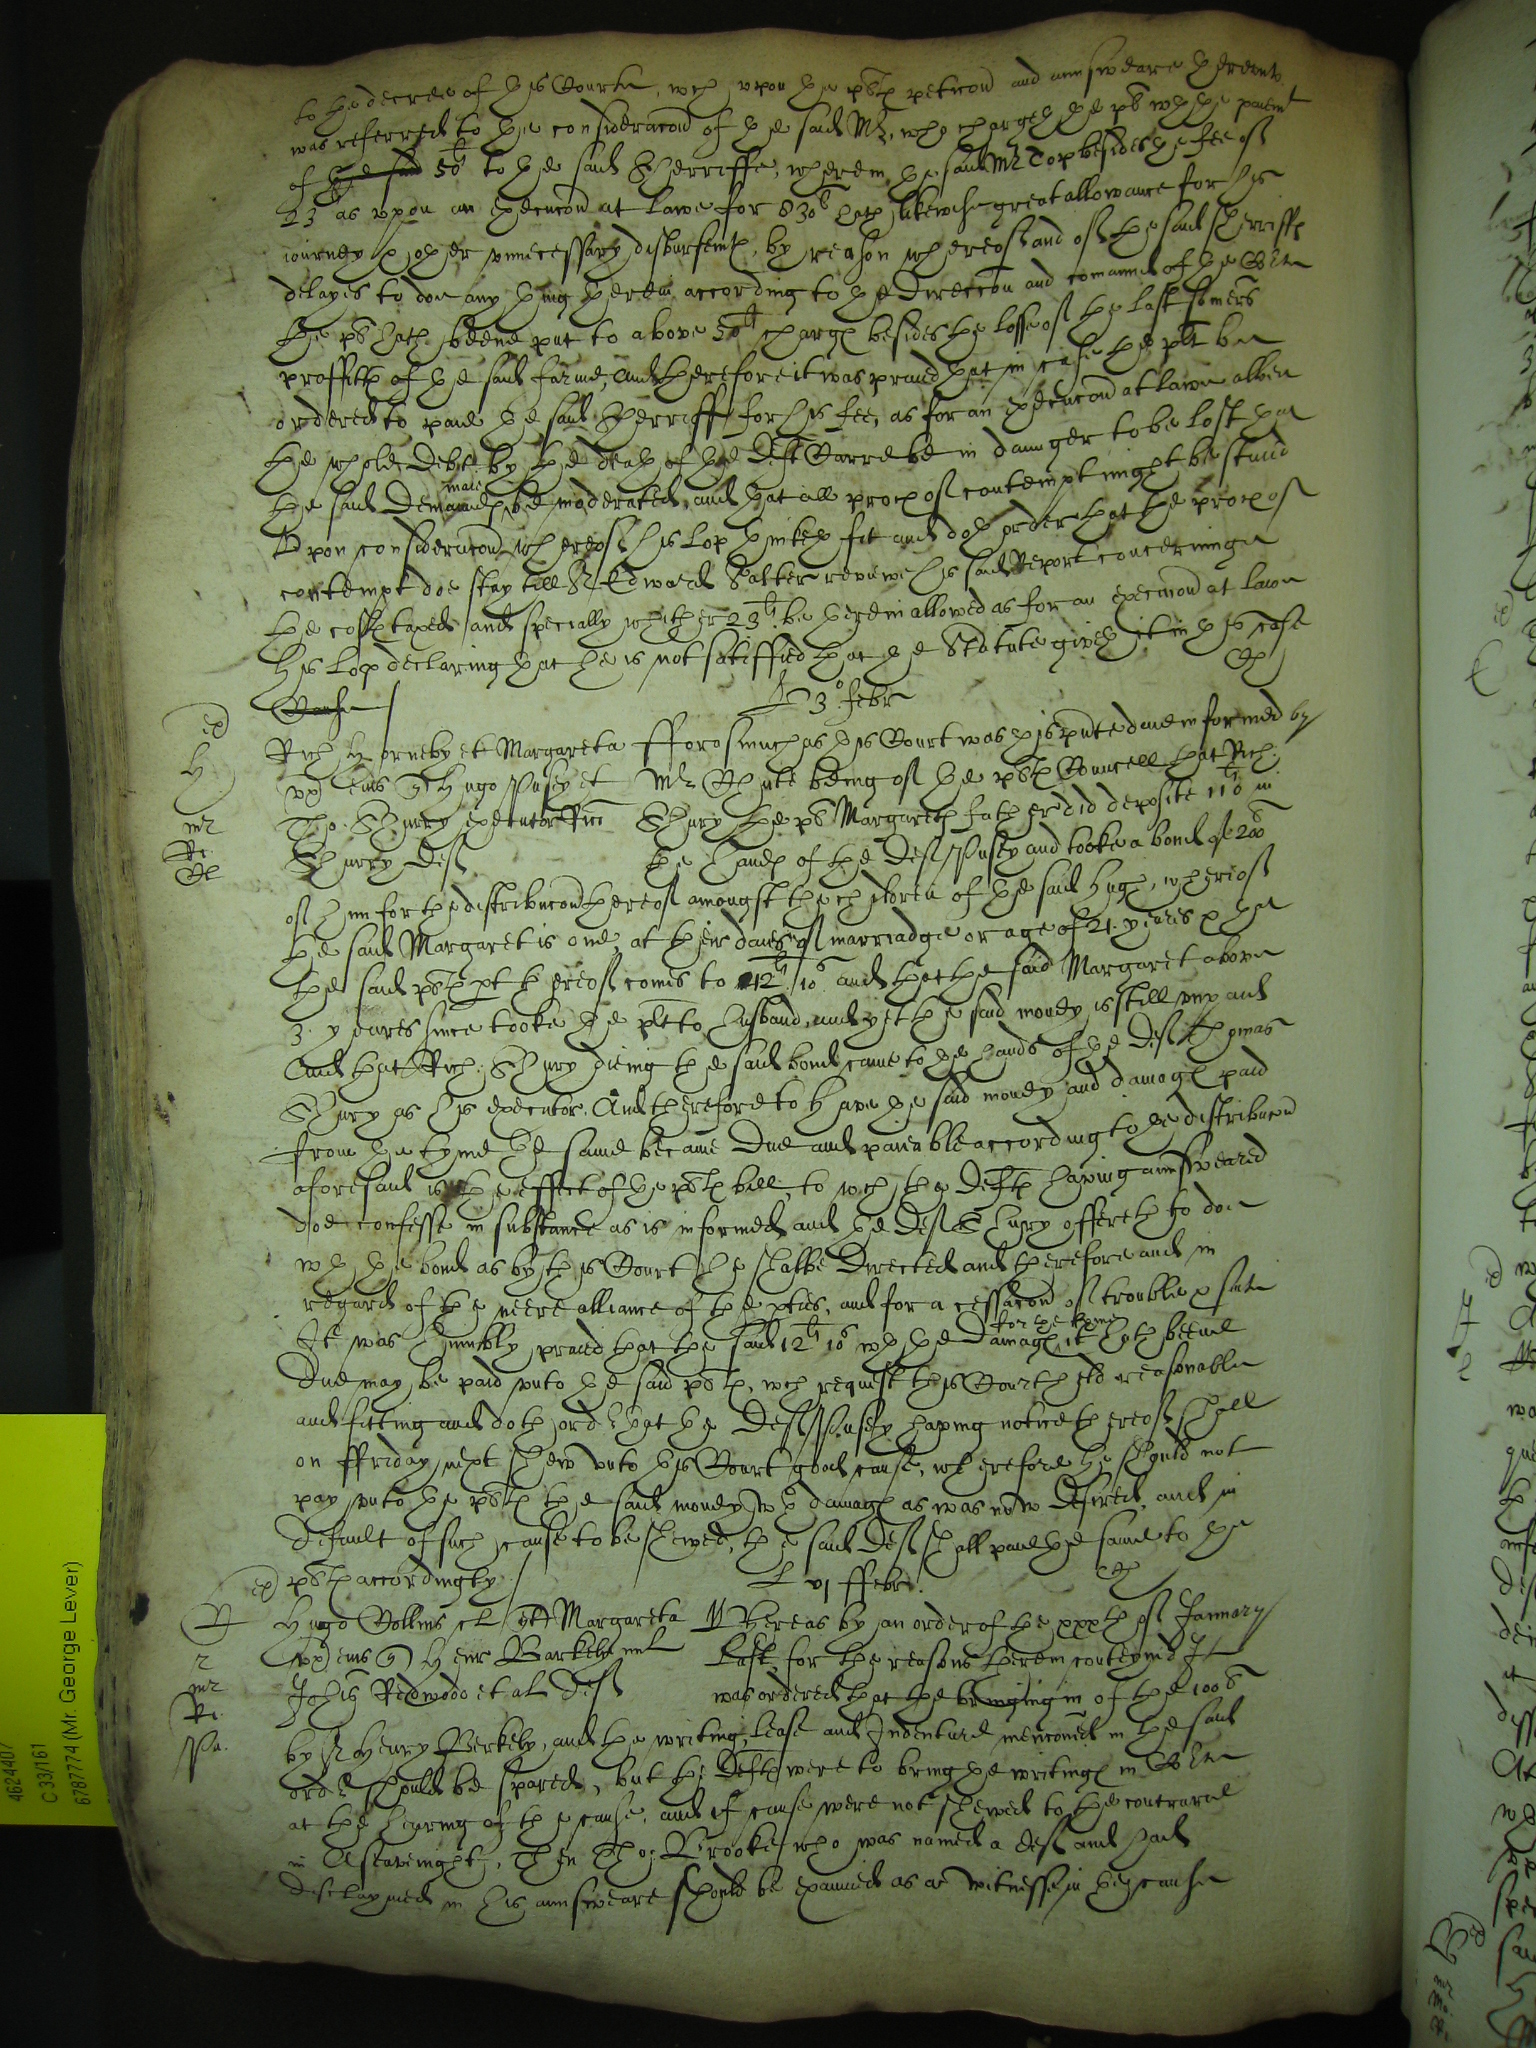 to the decree of this Courte, wch upon the pltes peticon and answeare thereunto
was referred to the consideracon of the said Mr, who chargeth the plt wth the paiemt
of the said 50li to the said Sherriffe, wherein the said Mr Cop besides the fee of
23li as upon an execucon at lawe for 830li hath likewise great allowance for his
iourney & other unnecessary disbursemts, by reason whereof and of the said sherriffs
delayes to doe any thing therein according to the direccon and comaund of the Court
the plt hath beene put to above 50li charge besides the losse of the last somers
proffitts of the said farme, And therefore it was praied that in case the plt be
ordered to paie the said Sherriff for his fee, as for an execucon at lawe albeit
the whole debt by the death of the deft Carre be in daunger to be lost that
the said demaunds maie be moderated, and that all proces of contempt might be staied
Upon consideracon whereof his Lop thinketh fit and doth order that the proces of
contempt doe stay till Sr Edward Salter reviewe his said Report concerninge
the costs taxed and specially whether 23li be therein allowed as for an execucon at lawe
his Lop declaring that he is not satisfied that the Statute giveth it in this case
Course / L 3o Febr
Rich Horneby et Margareta Fforasmuch as this Court was this pnte daie informed by
ux eius qt Hugo Pusey et Mr Chute being of the plts Councell that Rich:
Tho: Shury executor Rici Shury the plt Margaretts father did deposite 110li in
Shurry Def the hands of the def Pusey and tooke a bond of 200li
of him for the distribucon thereof amongst the children of the said Hugh, whereof
the said Margaret is one, at their daies of marriadge or age of 21. yeares & that
the said plts pt thereof comes to 12li 10s and that the said Margaret above
3. yeares since tooke the plt to husband, and yet the said money is still unpaid
And that Rich: Shury dieing the said bond came to the hands of the def Thomas
Shury as his executor. And therefore to have the said money and damages paid
from the tyme the same became due and paieable according to the distribucon
aforesaid is the effect of the plts bill, to wch the Defts having answeared
doe confesse in substance as is informed and the def Shury offereth to doe
wth the bond as by this Court he shalbe directed and therefore and in
regard of the neere alliance of the pties, and for a cessacon of trouble & suite
It was humbly praied that the said 12li 10s wth the damages for the tyme it hath beene
due may be paid unto the said plts, wch request this Court held reasonable
and fitting and doth order that the Def Pusey having notice thereof shall
on Ffriday next shew unto this Court good cause, wherefore he should not
pay unto the plts the said money wth damages as was now desired, and in
default of such cause to be shewed, the said def shall paie the same to the
plts accordingly / L vj Ffebr.
Hugo Collins cl et Margareta Whereas by an order of the xxxth of January
ux eius qt Henr Barkeley mil last, for the reasons therein conteyned It
Johis Redwood et al Def was ordered that the bringing in of the 100li
by Sr Henry Berkeley, and the writing, lease and Indenture mencioned in the said
order should be spared, but the Defts were to bring the writings in Court
at the hearing of the cause, and if cause were not shewed to the contrarie
in a seavenight, Then Tho: Brooke who was named a def and had
disclaymed in his answeare should be examined as a witnesse in the cause
4624407
C 33/161
6787774 (Mr. George Lever)